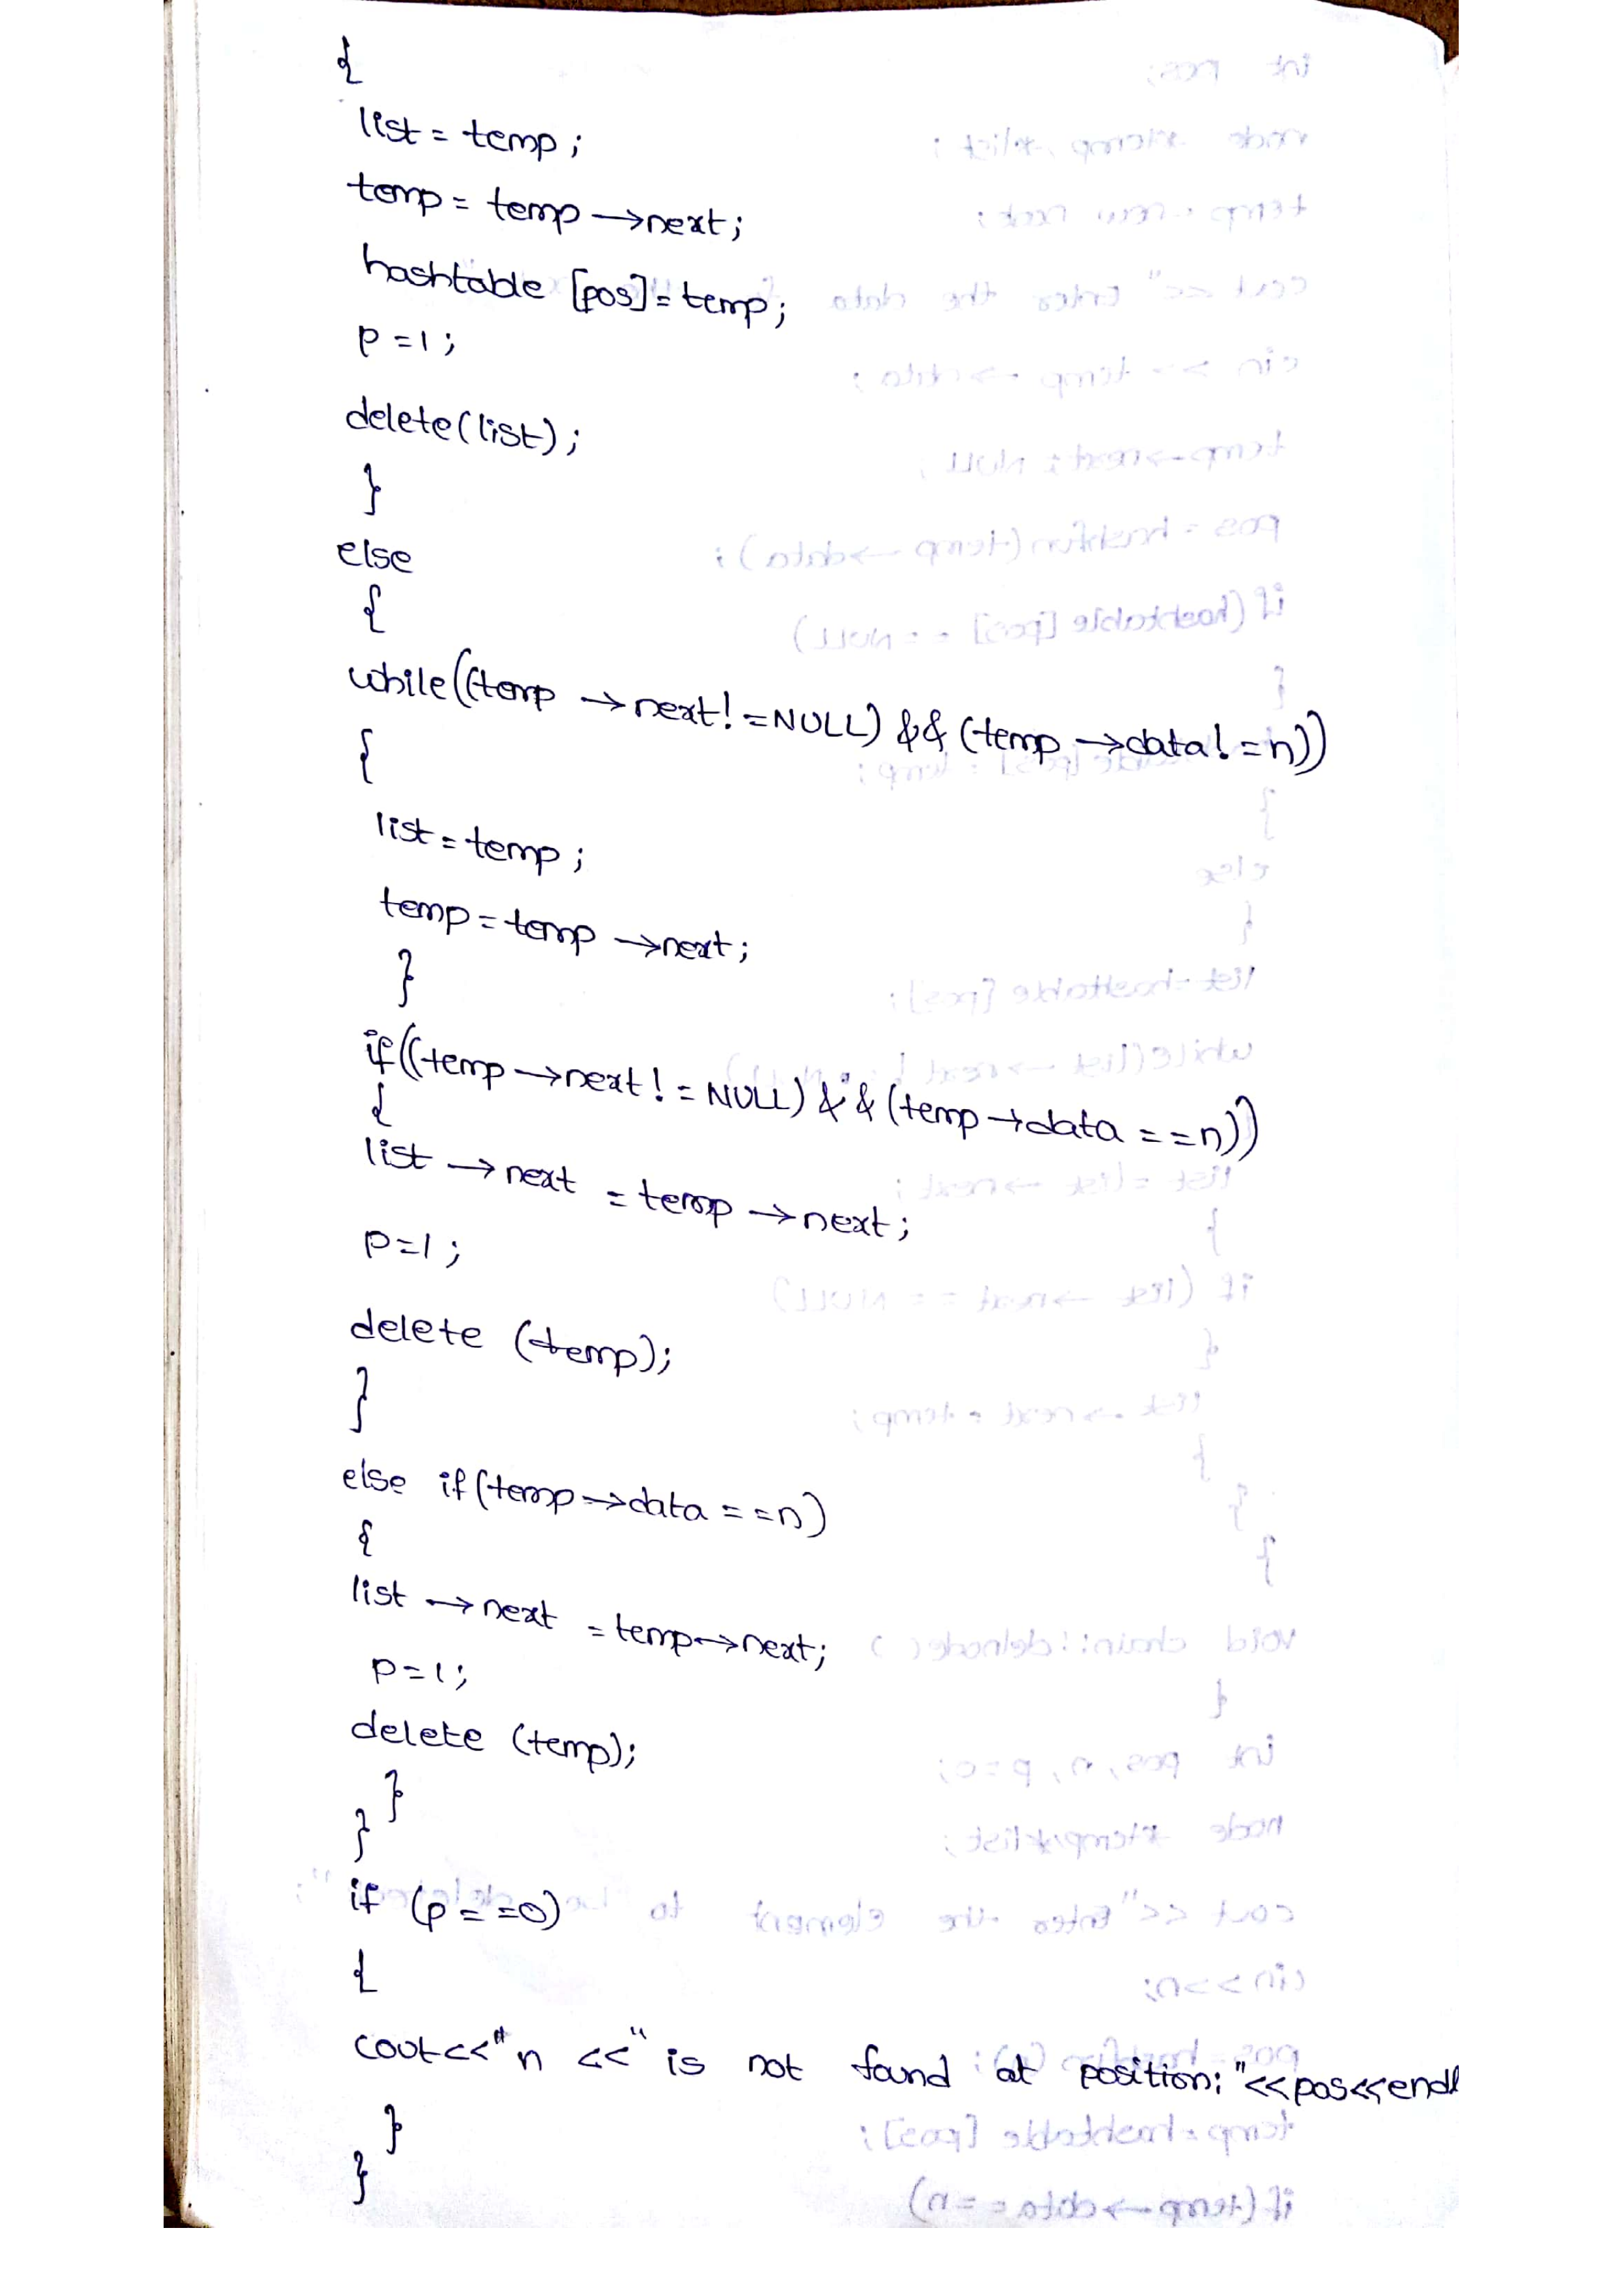 {
list = temp;
temp = temp →next;
hashtable [pos] = temp;
p = 1;
delete(list);
}
else
{
while((temp → next! = NULL) && (temp →data! = n))
{
list = temp;
temp = temp →next;
}
if((temp →next! = NULL) && (temp →data = =n))
{
list → next = temp →next;
p=1;
delete (temp);
}
else if(temp →data = =n)
{
list → next = temp→next;
p=1;
delete (temp);
}
}
if (p = =0)
{
cout<<" n <<" is not found at position: "<<pos<<endl
}
}